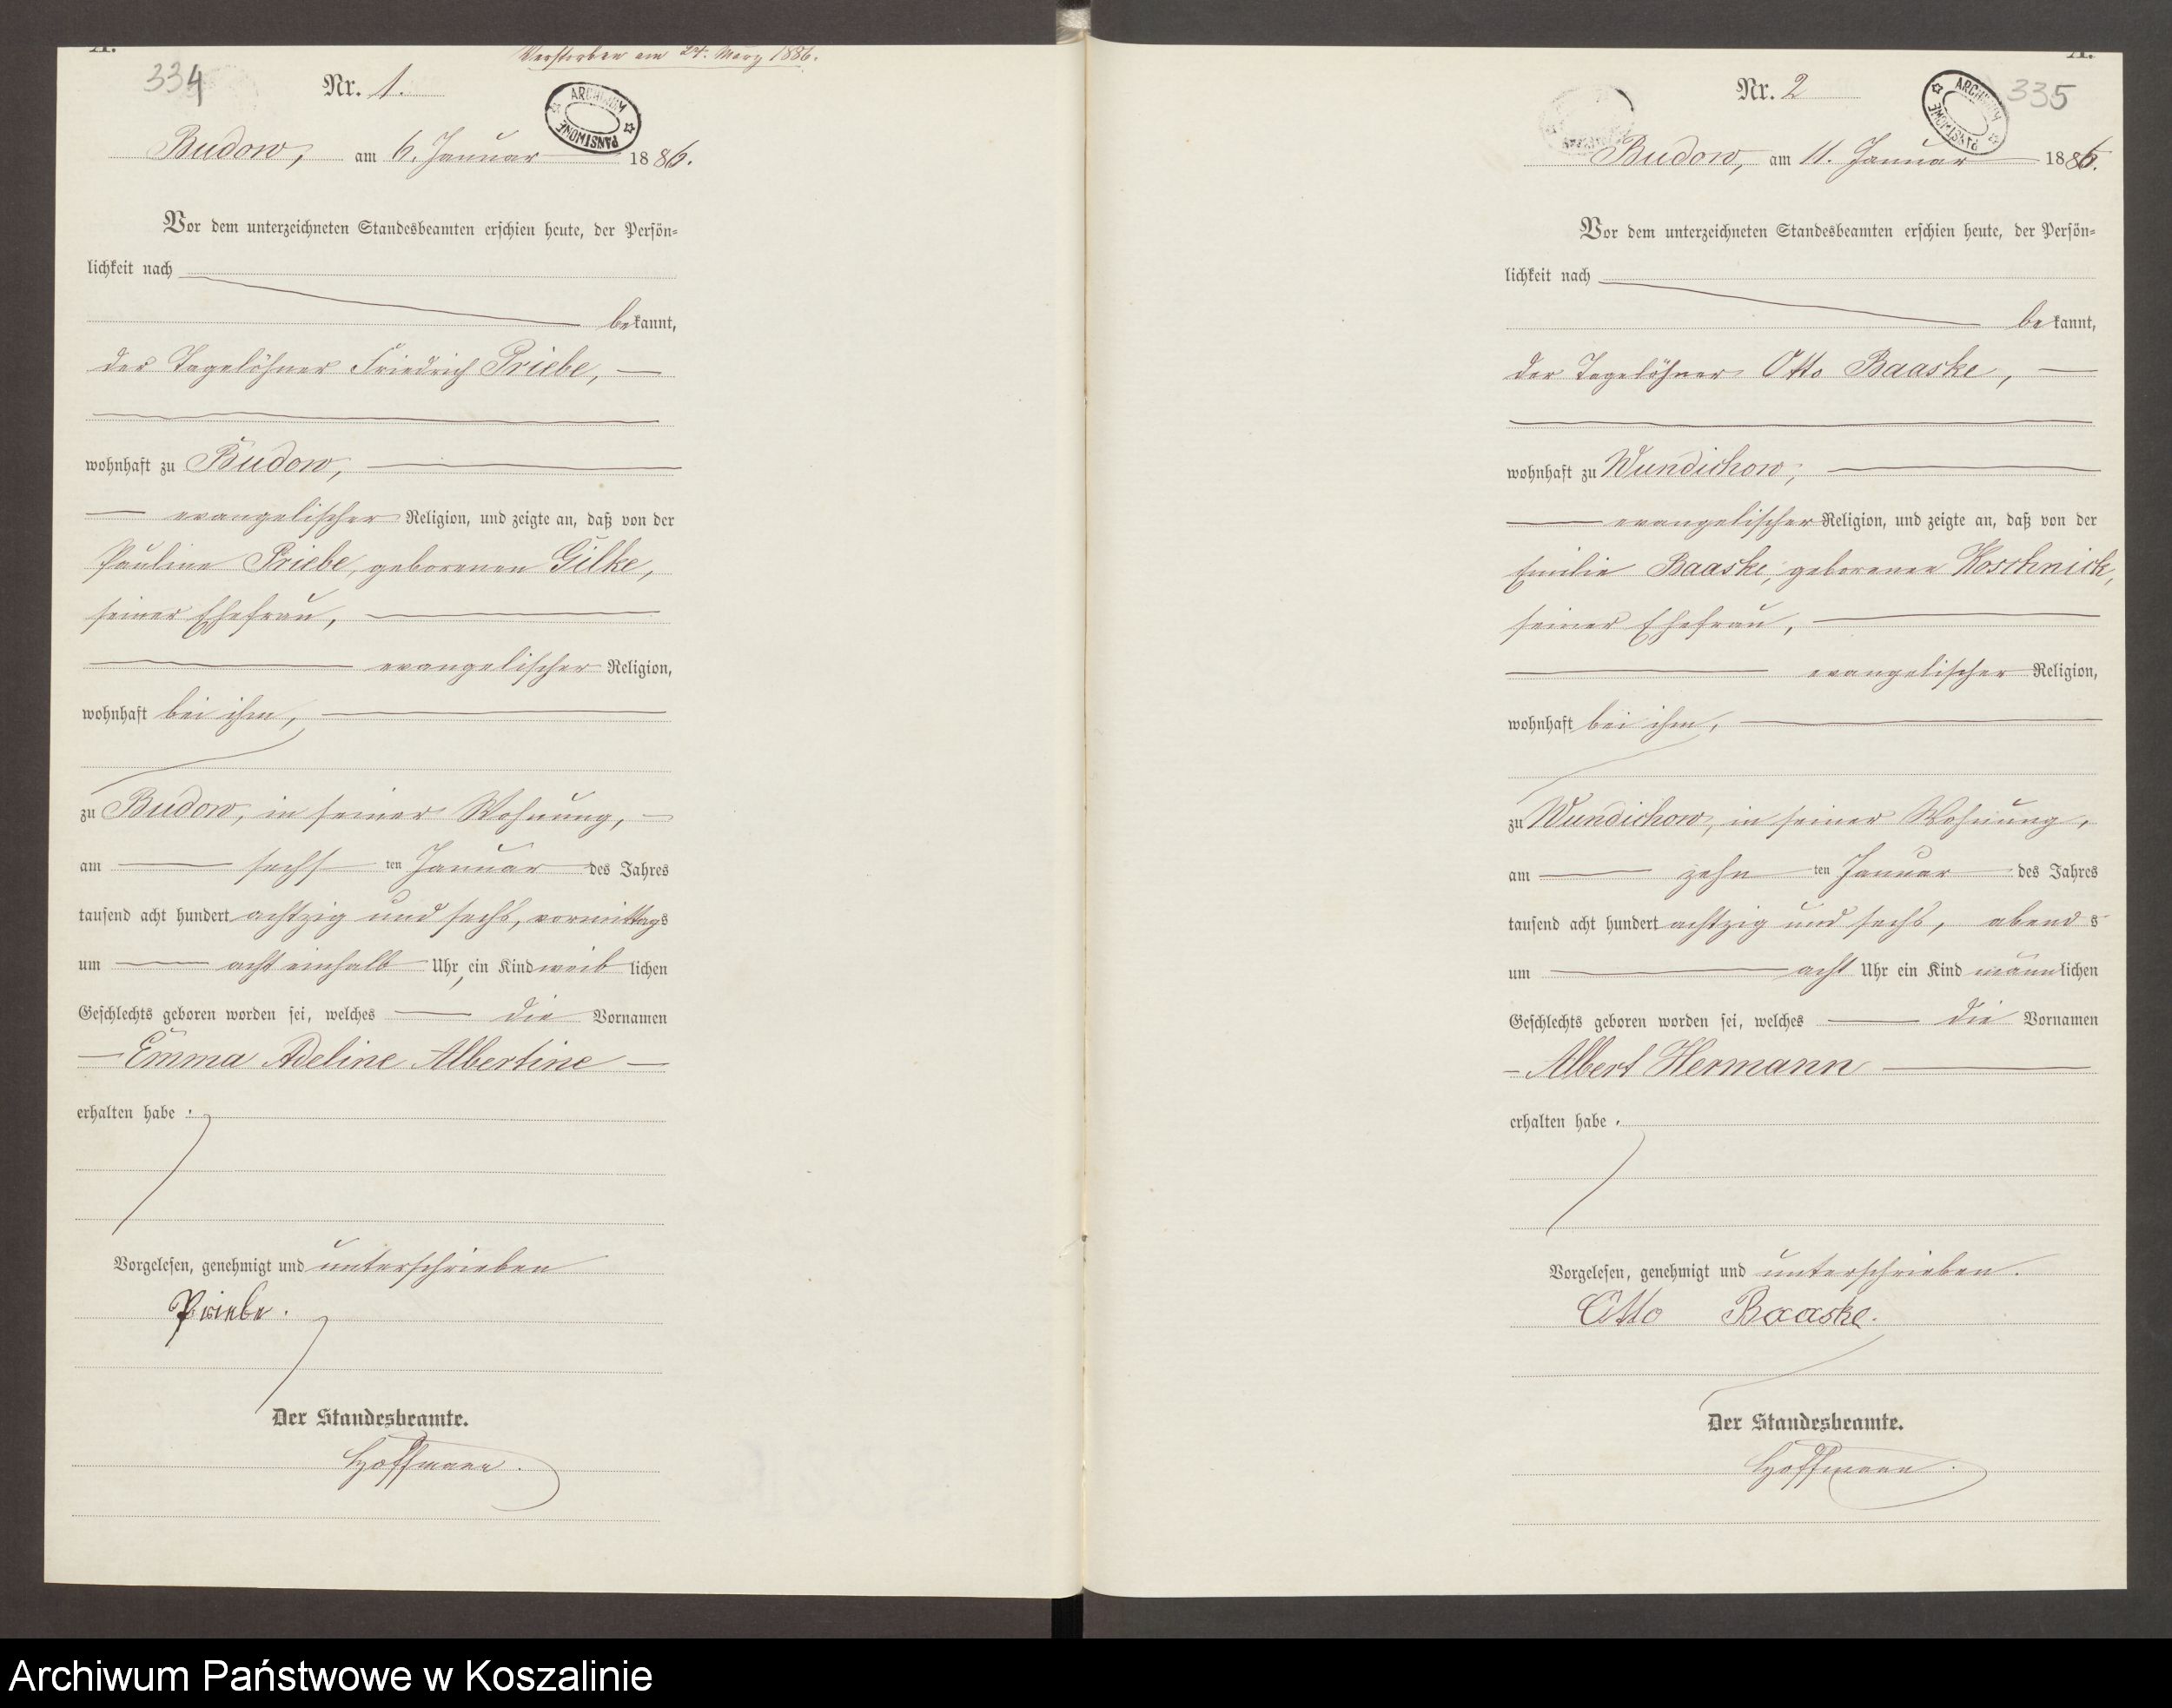 A.
Verstorben am 24. März 1886.
334
Nr. 1.
ARCHIWUM PAŃSTWOWE
Budow, am 6. Januar 1886.
Vor dem unterzeichneten Standesbeamten erschien heute, der Persön=
lichkeit nach
bekannt,
der Tagelöhner Friedrich Priebe,
wohnhaft zu Budow,
evangelischer Religion, und zeigte an, daß von der
Pauline Priebe, geborenen Gilke,
seiner Ehefrau,
evangelischer Religion,
wohnhaft bei ihm,
zu Budow, in seiner Wohnung,
am sechsten Januar des Jahres
tausend acht hundert achtzig und sechs, vormittags
um acht einhalb Uhr, ein Kind weiblichen
Geschlechts geboren worden sei, welches die Vornamen
Emma Adeline Albertine
erhalten habe.
Vorgelesen, genehmigt und unterschrieben
Priebe.
Der Standesbeamte.
Hoffmann.
A.
Nr. 2
335
ARCHIWUM PAŃSTWOWE
Budow, am 11. Januar 1886.
Vor dem unterzeichneten Standesbeamten erschien heute, der Persön=
lichkeit nach
bekannt,
der Tagelöhner Otto Baaske,
wohnhaft zu Wundichow,
evangelischer Religion, und zeigte an, daß von der
Emilie Baaske, geborenen Koschnick,
seiner Ehefrau,
evangelischer Religion,
wohnhaft bei ihm,
zu Wundichow, in seiner Wohnung,
am zehnten Januar des Jahres
tausend acht hundert achtzig und sechs, abends
um acht Uhr ein Kind männlichen
Geschlechts geboren worden sei, welches die Vornamen
Albert Hermann
erhalten habe.
Vorgelesen, genehmigt und unterschrieben.
Otto Baaske.
Der Standesbeamte.
Hoffmann.
Archiwum Państwowe w Koszalinie